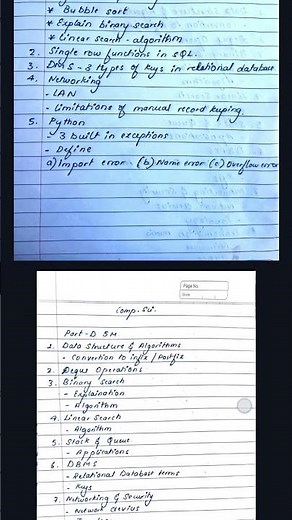 * Bubble sort
* Explain binary search
* Linear search - algorithm
2. Single row functions in SQL.
3. DBMS - 3 types of keys in relational database
4. Networking
- LAN
- Limitations of manual record keeping.
5. Python
3 built in exceptions
- Define
a) Import error (b) Name error (c) Overflow error
Page No.
Date
Comp. Sci.
Part-D 5M
1. Data Structure & Algorithms
- Convertion to infix / Postfix
2. Deque Operations
3. Binary Search
- Explaination
- Algorithm
4. Linear Search
- Algorithm
5. Stack & Queue
- Applications
6. DBMS
- Relational Database terms
- Keys
7. Networking & Security
- Network devices